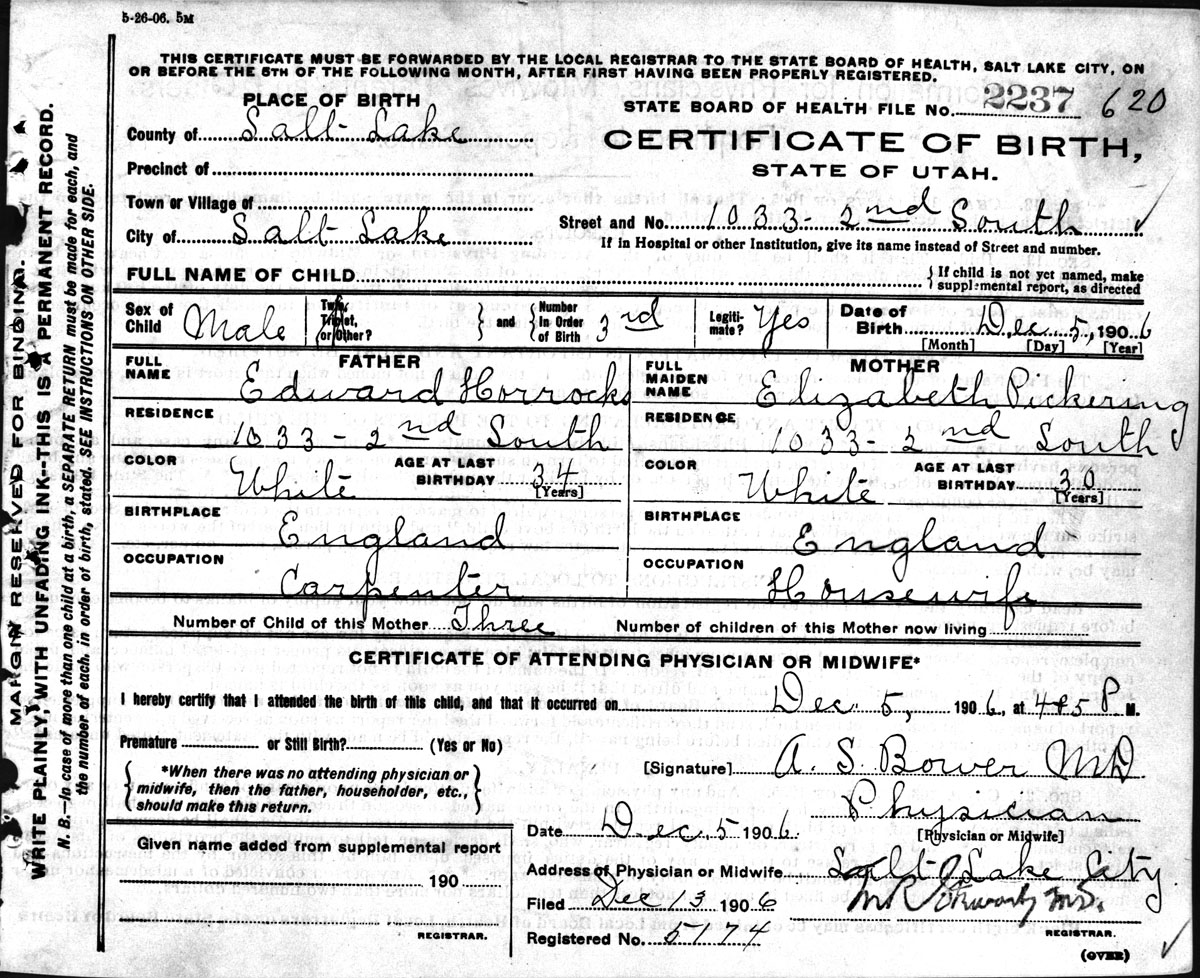 5-26-06. 5M
THIS CERTIFICATE MUST BE FORWARDED BY THE LOCAL REGISTRAR TO THE STATE BOARD OF HEALTH, SALT LAKE CITY, ON
OR BEFORE THE 5TH OF THE FOLLOWING MONTH, AFTER FIRST HAVING BEEN PROPERLY REGISTERED.
(3) MARGIN RESERVED FOR BINDING.
WRITE PLAINLY, WITH UNFADING INK--THIS IS A PERMANENT RECORD.
N. B.—In case of more than one child at birth, a SEPARATE RETURN must be made for each, and
the number of each, in order of birth, stated. SEE INSTRUCTIONS ON OTHER SIDE.
PLACE OF BIRTH
County of Salt Lake
Precinct of
Town or Village of
City of Salt Lake
STATE BOARD OF HEALTH FILE No. 2237 620
CERTIFICATE OF BIRTH,
STATE OF UTAH.
Street and No. 1033 - 2nd South
If in Hospital or other Institution, give its name instead of Street and number.
FULL NAME OF CHILD
If child is not yet named, make
supplemental report, as directed
Sex of Child Male
Twin, Triplet, or Other?
and Number in Order of Birth 3rd
Legitimate? Yes
Date of Birth Dec 5, 1906
[Month] [Day] [Year]
FATHER
FULL NAME Edward Horrocks
RESIDENCE
1033 - 2nd South
COLOR White
AGE AT LAST BIRTHDAY 34
[Years]
BIRTHPLACE
England
OCCUPATION
Carpenter
MOTHER
FULL MAIDEN NAME Elizabeth Pickering
RESIDENCE
1033 - 2nd South
COLOR White
AGE AT LAST BIRTHDAY 30
[Years]
BIRTHPLACE
England
OCCUPATION
Housewife
Number of Child of this Mother Three
Number of children of this Mother now living
CERTIFICATE OF ATTENDING PHYSICIAN OR MIDWIFE*
I hereby certify that I attended the birth of this child, and that it occurred on Dec. 5, 1906, at 4 P M.
Premature or Still Birth? (Yes or No)
*When there was no attending physician or
midwife, then the father, householder, etc.,
should make this return.
[Signature] A. S. Bower MD
Physician
[Physician or Midwife]
Date Dec 5 1906
Address of Physician or Midwife Salt Lake City
Given name added from supplemental report
190
REGISTRAR.
Filed Dec 13 1906
M.D.
Registered No. 5174
REGISTRAR.
(OVER)